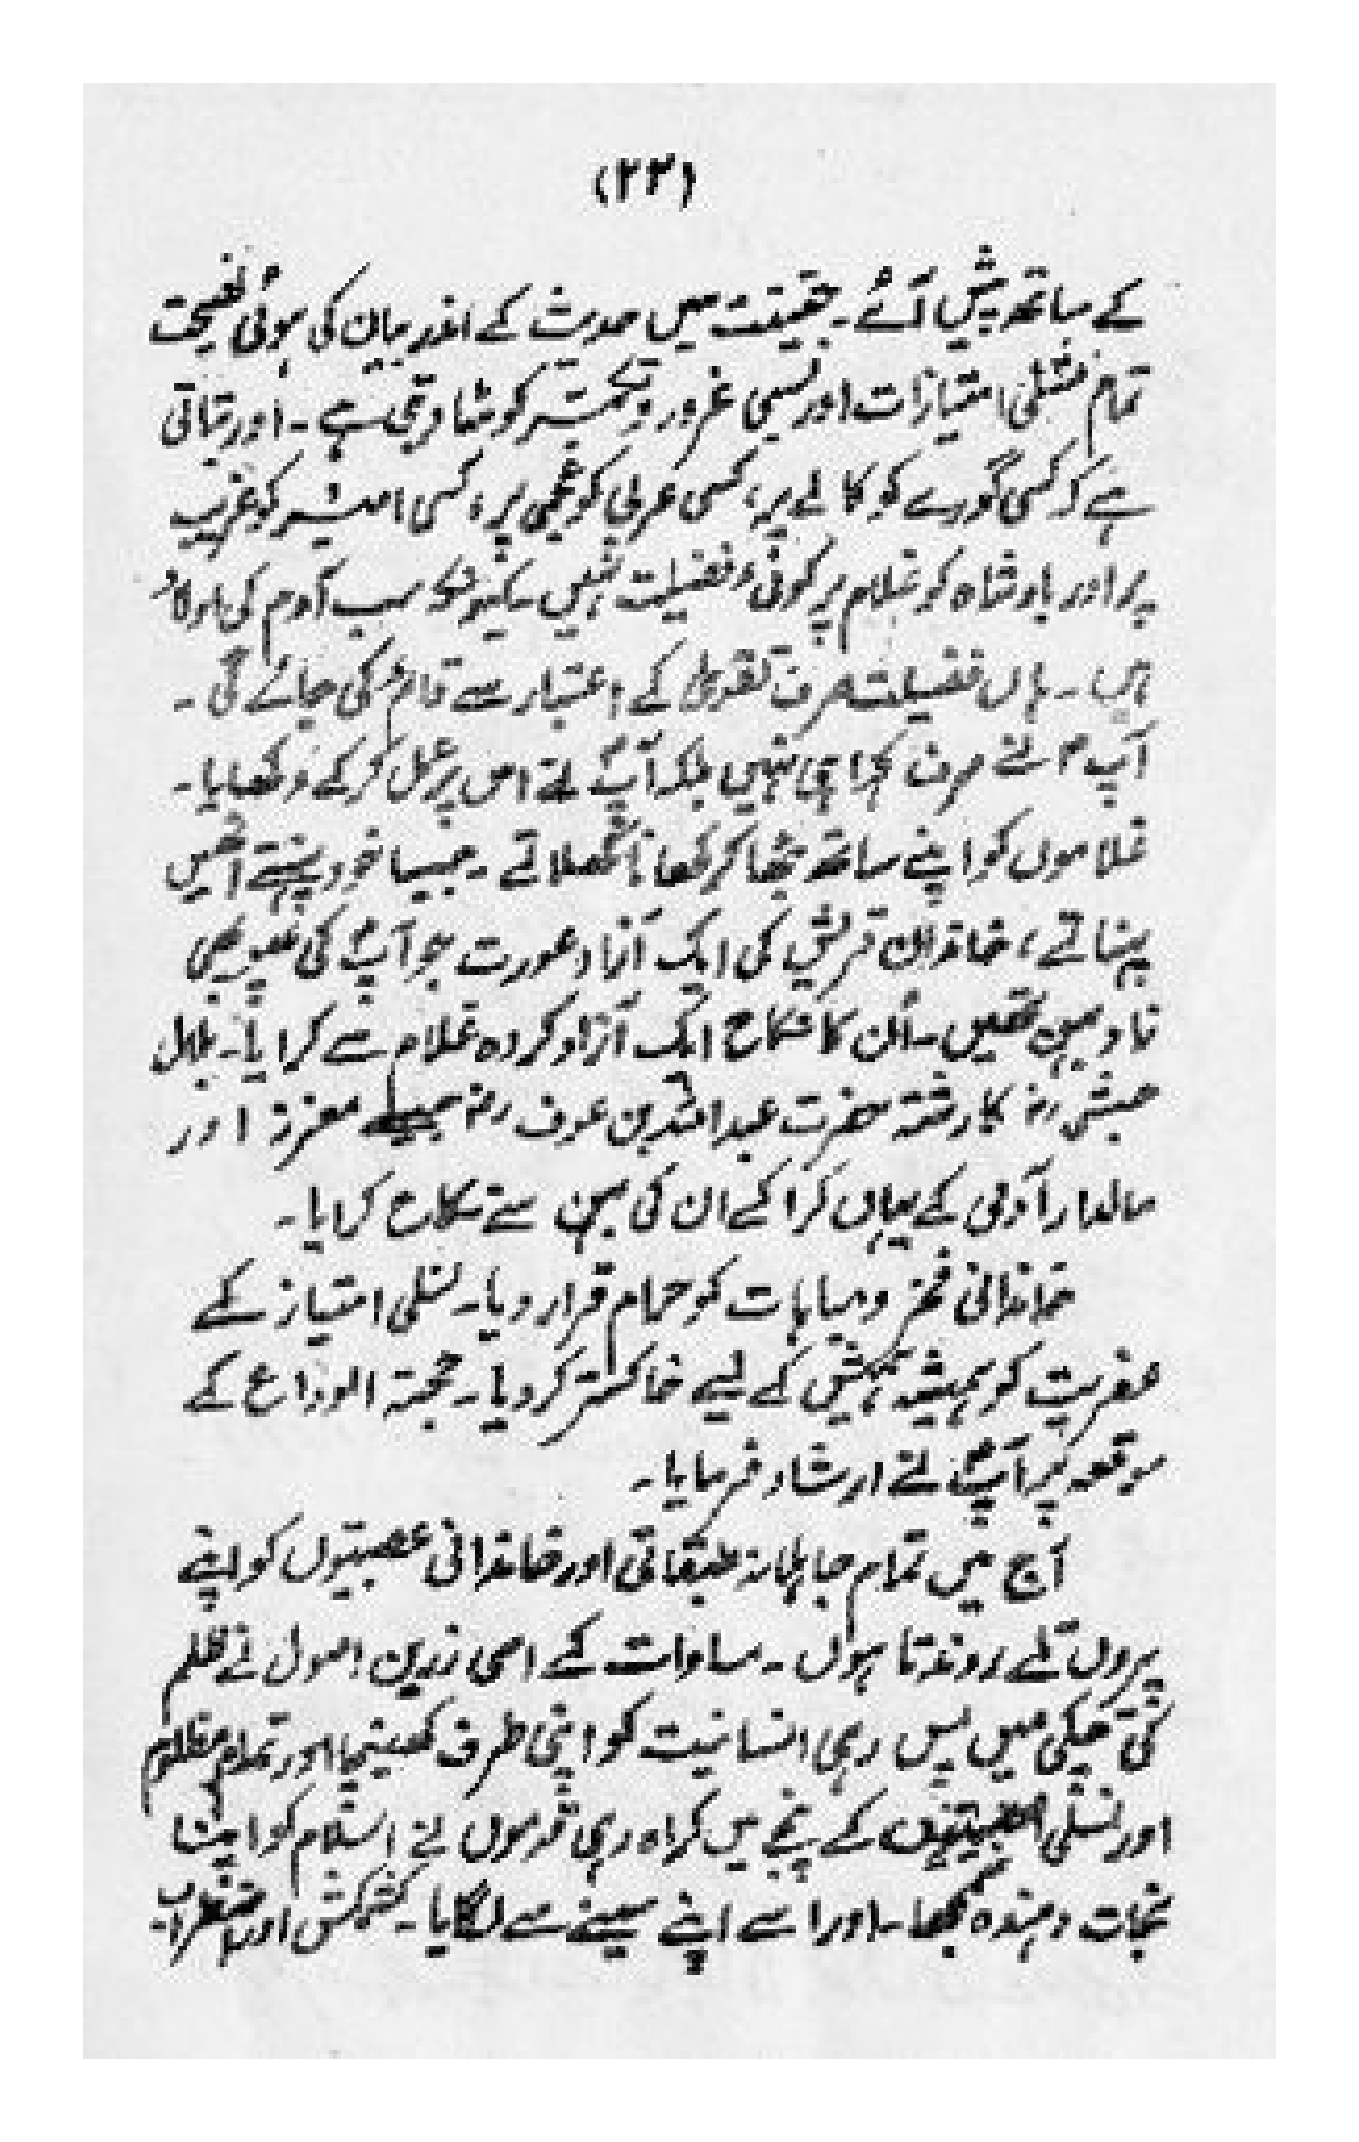 (۲۳)
کے ساتھ پیش آئے۔ حقیقت میں حدیث کے اندر بیان کی ہوئی نصیحت
تمام نسلی امتیازات اور نسبی غرور و تکبر کو مٹا دیتی ہے۔ اور بتاتی
ہے کہ کسی گورے کو کالے پر، کسی عربی کو عجمی پر، کسی امیر کو غریب
پر اور بادشاہ کو غلام پر کوئی فضیلت نہیں۔ کیونکہ سب آدم کی اولاد
ہیں۔ ہاں فضیلت صرف تقویٰ کے اعتبار سے قائم کی جائے گی۔
آپؐ نے صرف کہا ہی نہیں بلکہ آپؐ نے اس پر عمل کر کے دکھایا۔
غلاموں کو اپنے ساتھ بٹھا کر کھانا کھلاتے۔ جیسا خود پہنتے انھیں
پہناتے، خاندان قریش کی ایک آزاد عورت جو آپؐ کی پھوپھی
زاد بہن تھیں۔ اُن کا نکاح ایک آزاد کردہ غلام سے کرایا۔ بلال
حبشی رضہ کا رشتہ حضرت عبداللہ بن عوف رضہ جیسے معزز اور
مالدار آدمی کے یہاں کرا کے ان کی بہن سے نکاح کرایا۔
خاندانی فخر و مباہات کو حرام قرار دیا۔ نسلی امتیاز کے
عفریت کو ہمیشہ ہمیش کے لیے خاکستر کر دیا۔ حجۃ الوداع کے
موقعہ پر آپؐ نے ارشاد فرمایا۔
آج میں تمام جاہلانہ طبقاتی اور خاندانی عصبیتوں کو اپنے
پیروں تلے روندتا ہوں۔ مساوات کے اسی زریں اصول نے ظلم
کی چکی میں پس رہی انسانیت کو اپنی طرف کھینچا اور تمام مظلوم
اور نسلی عصبیتوں کے پنجے میں کراہ رہی قوموں نے اسلام کو اپنا
نجات دہندہ سمجھا۔ اور اسے اپنے سینے سے لگایا۔ کشمکش اور اضطراب